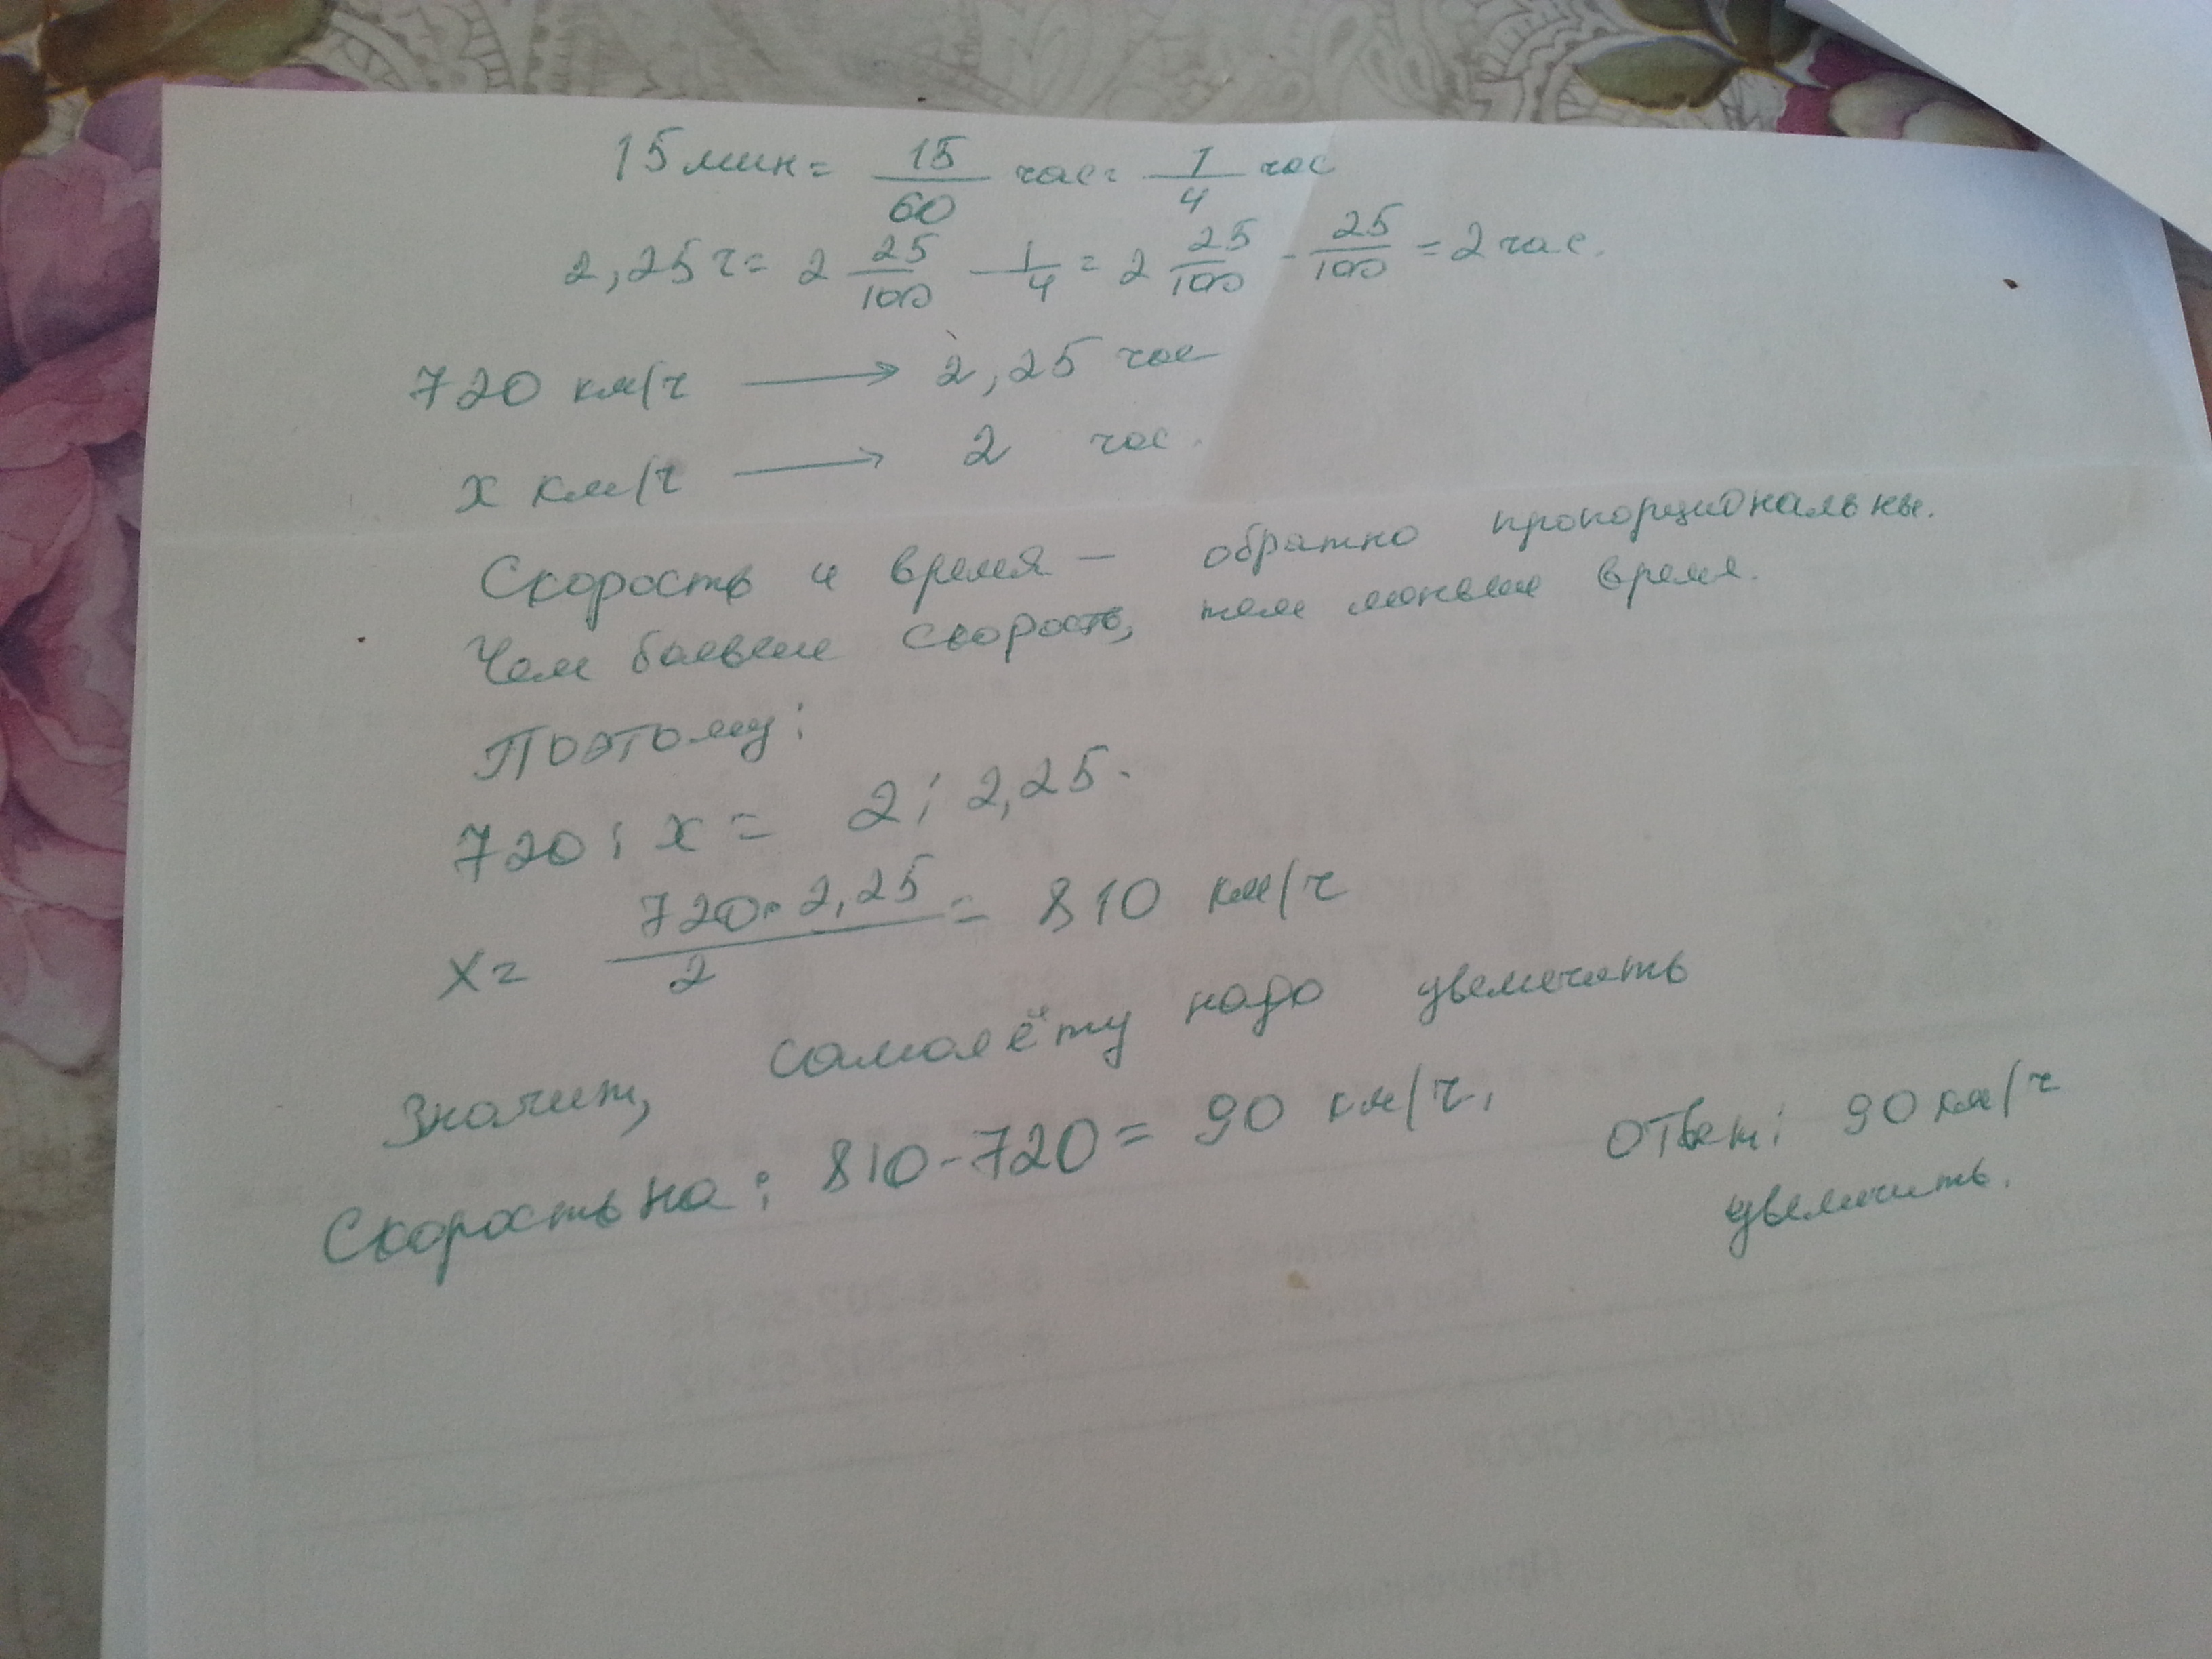 15 мин = 15/60 час = 1/4 час
2,25 ч = 2 25/100 - 1/4 = 2 25/100 - 25/100 = 2 час.
720 км/ч → 2,25 час
х км/ч → 2 час.
Скорость и время – обратно пропорциональны.
Чем больше скорость, тем меньше время.
Поэтому:
720 : х = 2 : 2,25.
х = 720·2,25/2 = 810 км/ч
Значит, самолёту надо увеличить
скорость на: 810-720 = 90 км/ч.
Ответ: 90 км/ч
увеличить.